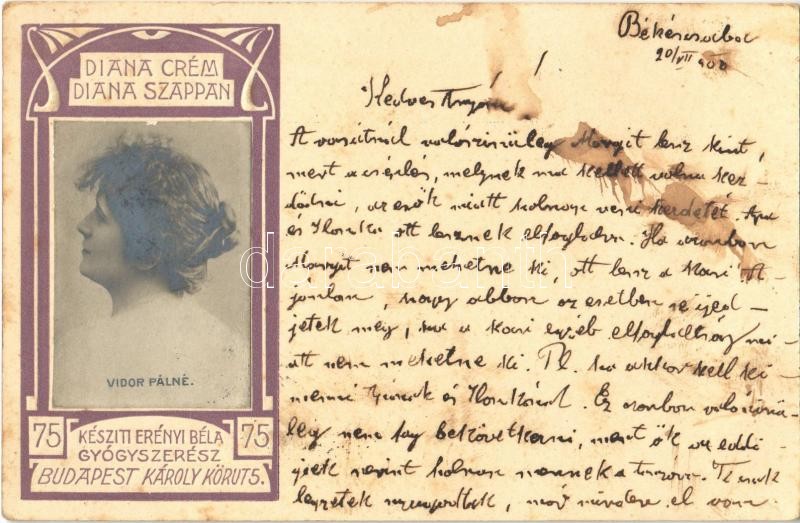 DIANA CRÉM
DIANA SZAPPAN
VIDOR PÁLNÉ.
75 KÉSZITI ERÉNYI BÉLA 75
GYÓGYSZERÉSZ
BUDAPEST KÁROLY KÖRUT 5.
Békéscsaba
20/VII 900
Kedves Anyám!
A vasútnál valószinüleg Margit lesz kint,
mert a cséplés, melynek ma kellett volna kez-
dődni, az esők miatt holnap veszi kezdetét. Apa
és Ilonka ott lesznek elfoglalva. Ha azonban
Margit nem mehetne ki, ott lesz a Mari
hogy abban az esetben ne ijed-
jetek meg, ha a egyéb elfoglaltság mi-
att nem mehetne ki. Pl. ha akkor kell ki-
menni és Ilonkáért. Ez azonban valószinü-
leg nem fog bekövetkezni, mert ők az eddi-
giek szerint holnap mennek a
legyetek nyugodtak, már minden el van
darabanth